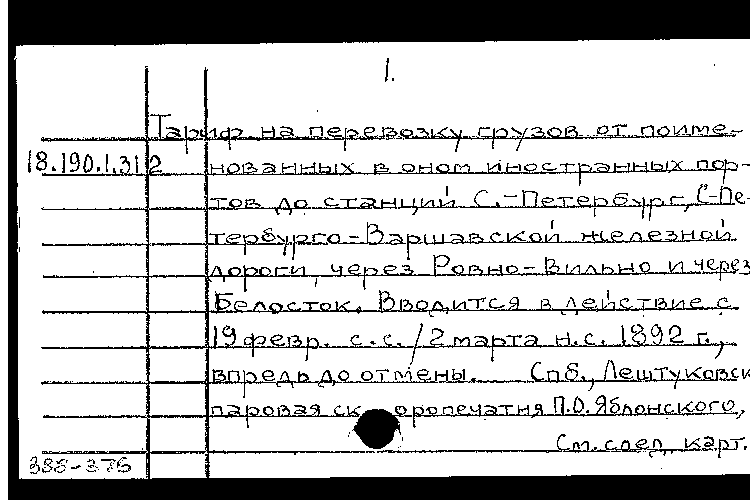 1.
Тариф на перевозку грузов от поиме-
18.190.1.312 нованных в оном иностранных пор-
тов до станций С.-Петербург, С-Пе-
тербурго-Варшавской железной
дороги, через Ровно-Вильно и через
Белосток. Вводится в действие с
19 февр. с.с./2 марта н.с. 1892 г.,
впредь до отмены. Спб., Лештуковск
паровая скоропечатня П.О. Яблонского,
См. след. карт.
388-376